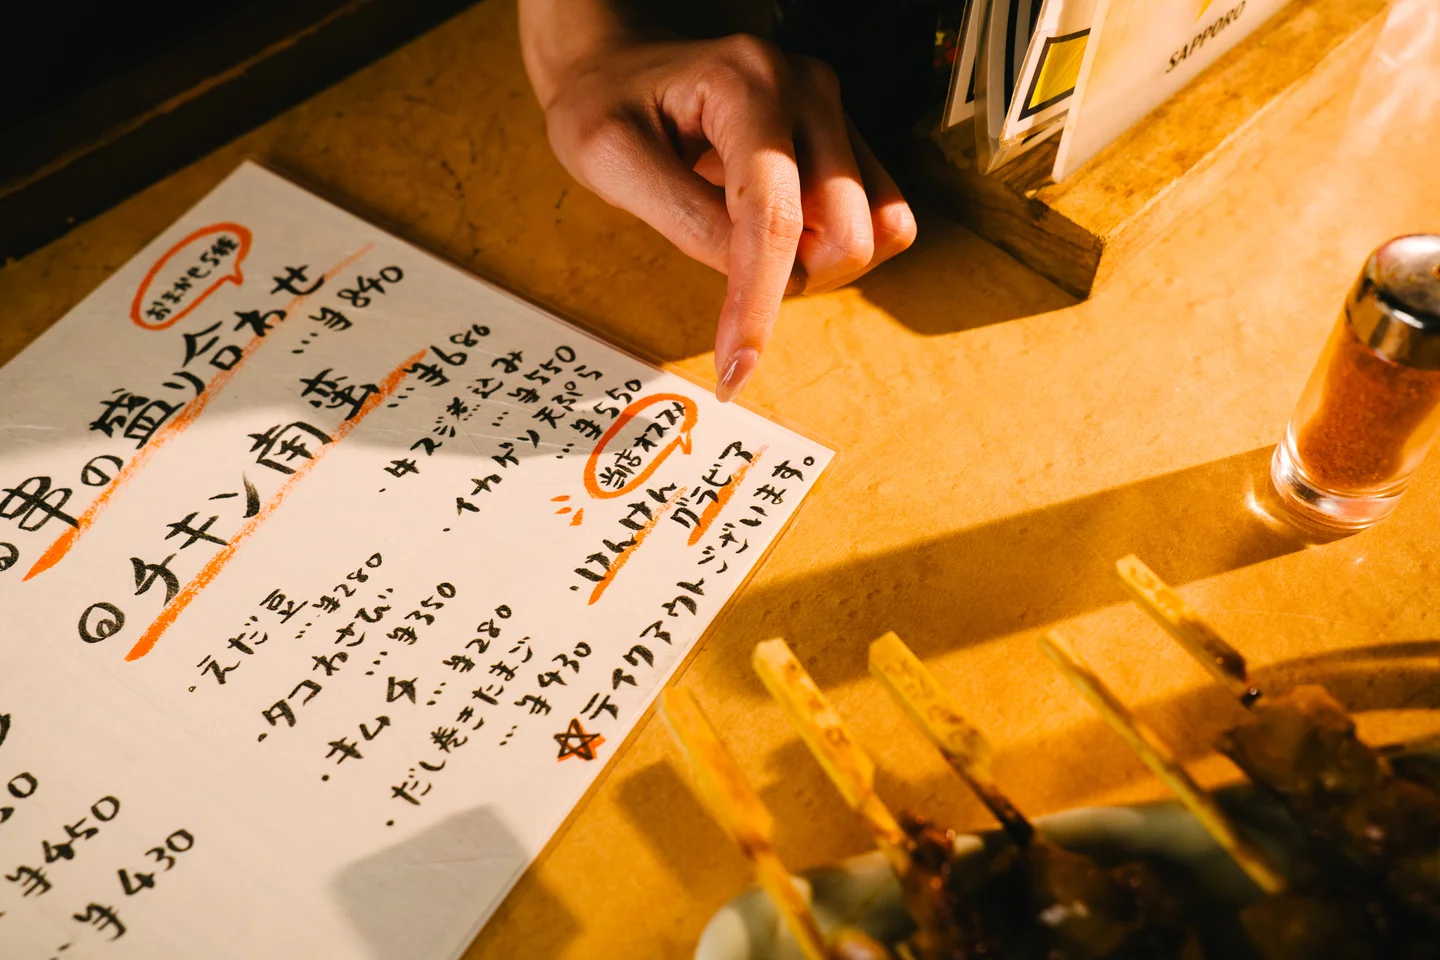 おまかせ5種
串の盛り合わせ
…¥840
チキン南蛮
…¥680
・牛スジ煮込み
…¥550
・イカゲソ天ぷら
…¥550
当店オススメ
グラビア
・えだ豆
…¥280
・タコわさび
…¥350
・キムチ…¥280
・だし巻きたまご
…¥430
☆テイクアウトございます。
¥450
¥430
SAPPORO